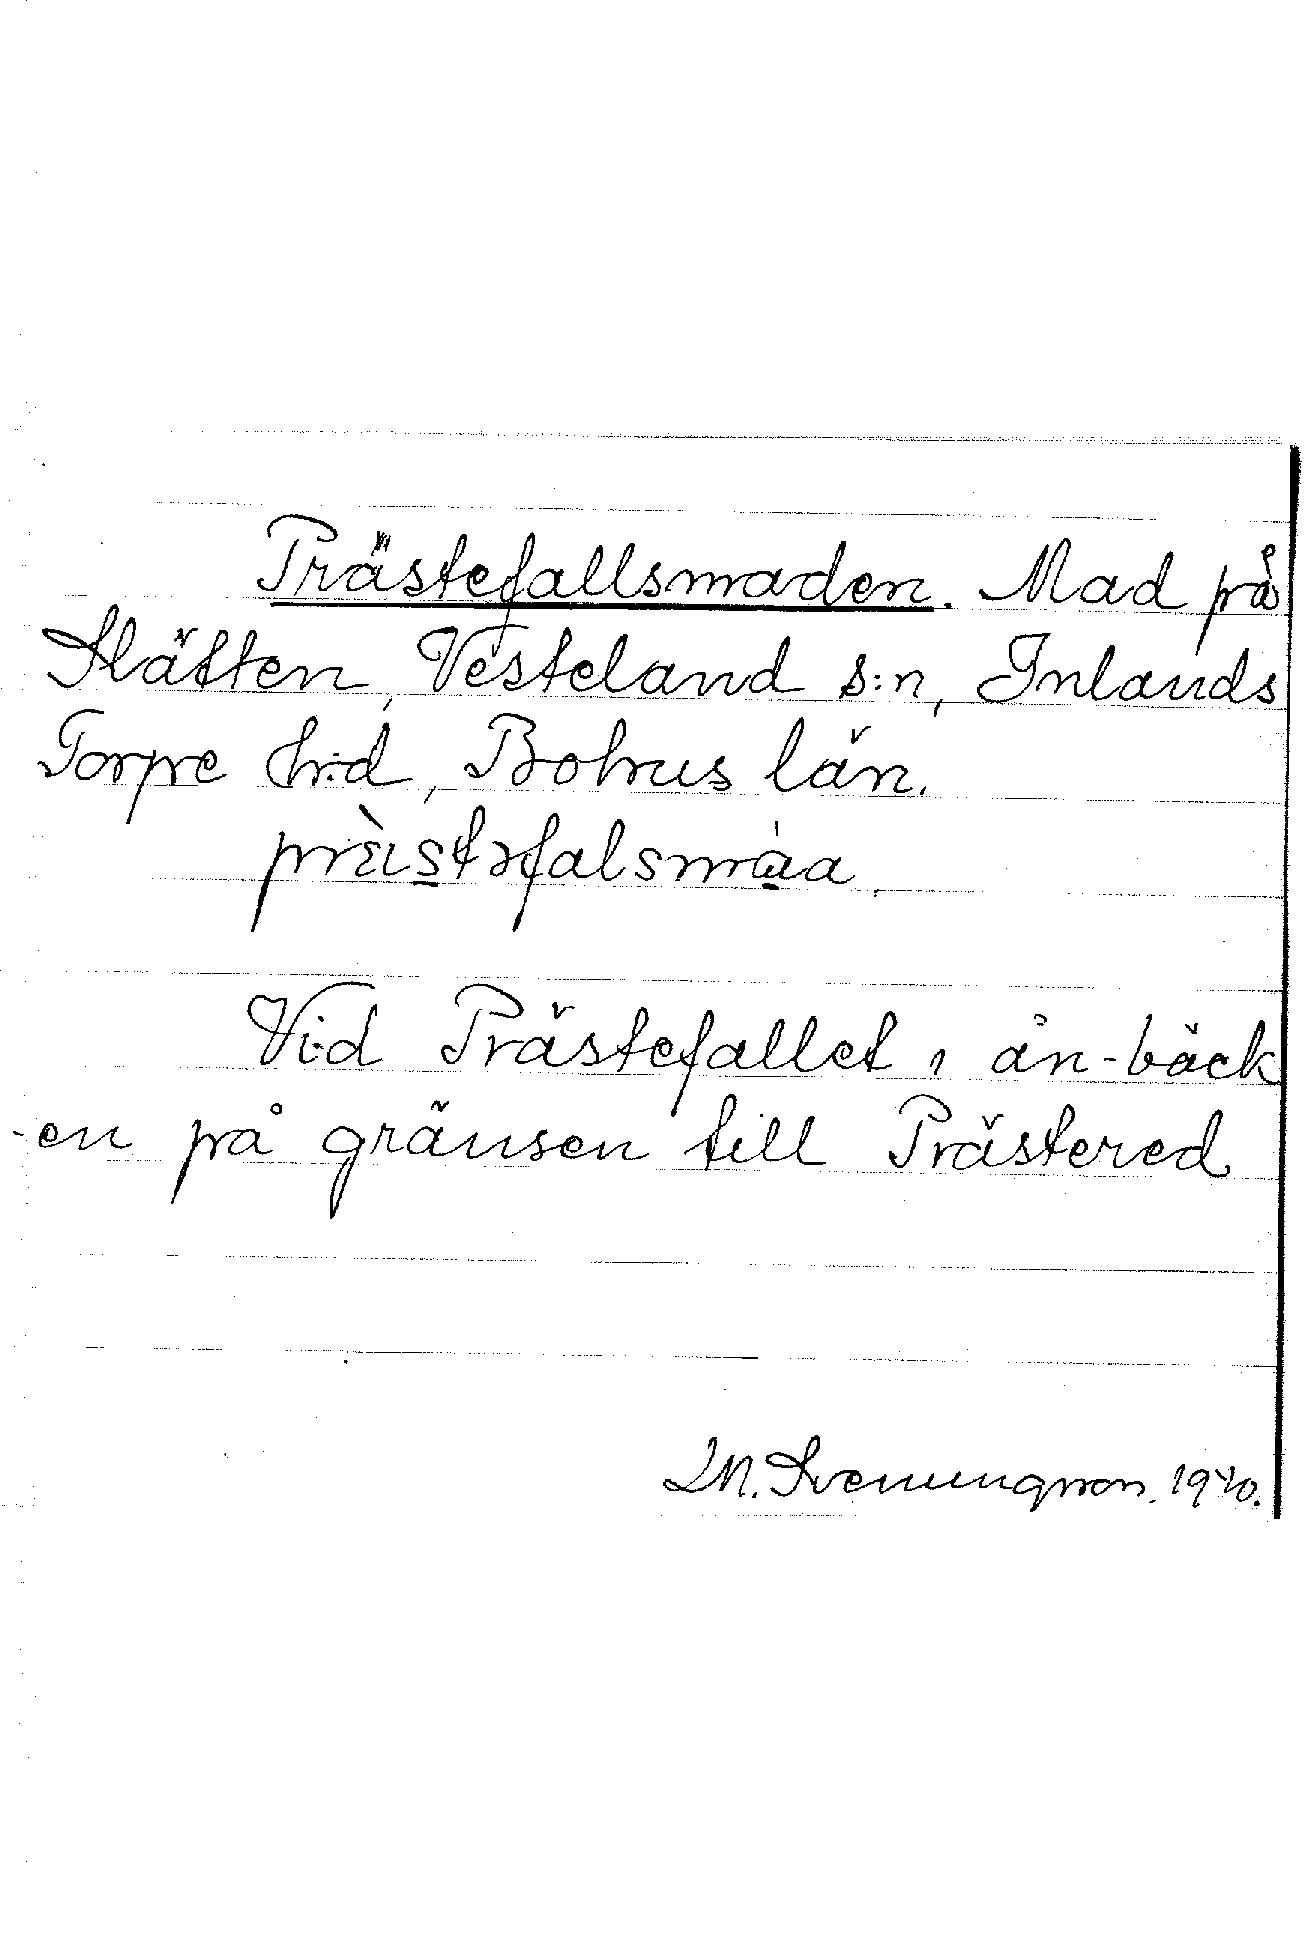 Prästefallsmaden. Mad på
Slätten, Vesteland s:n, Inlands
Torpe hd, Bohus län.
prɛ̀istəfalsmàa.
Vid Prästefallet i ån-bäck
-en på gränsen till Prästered
M. Svenungsson. 1940.